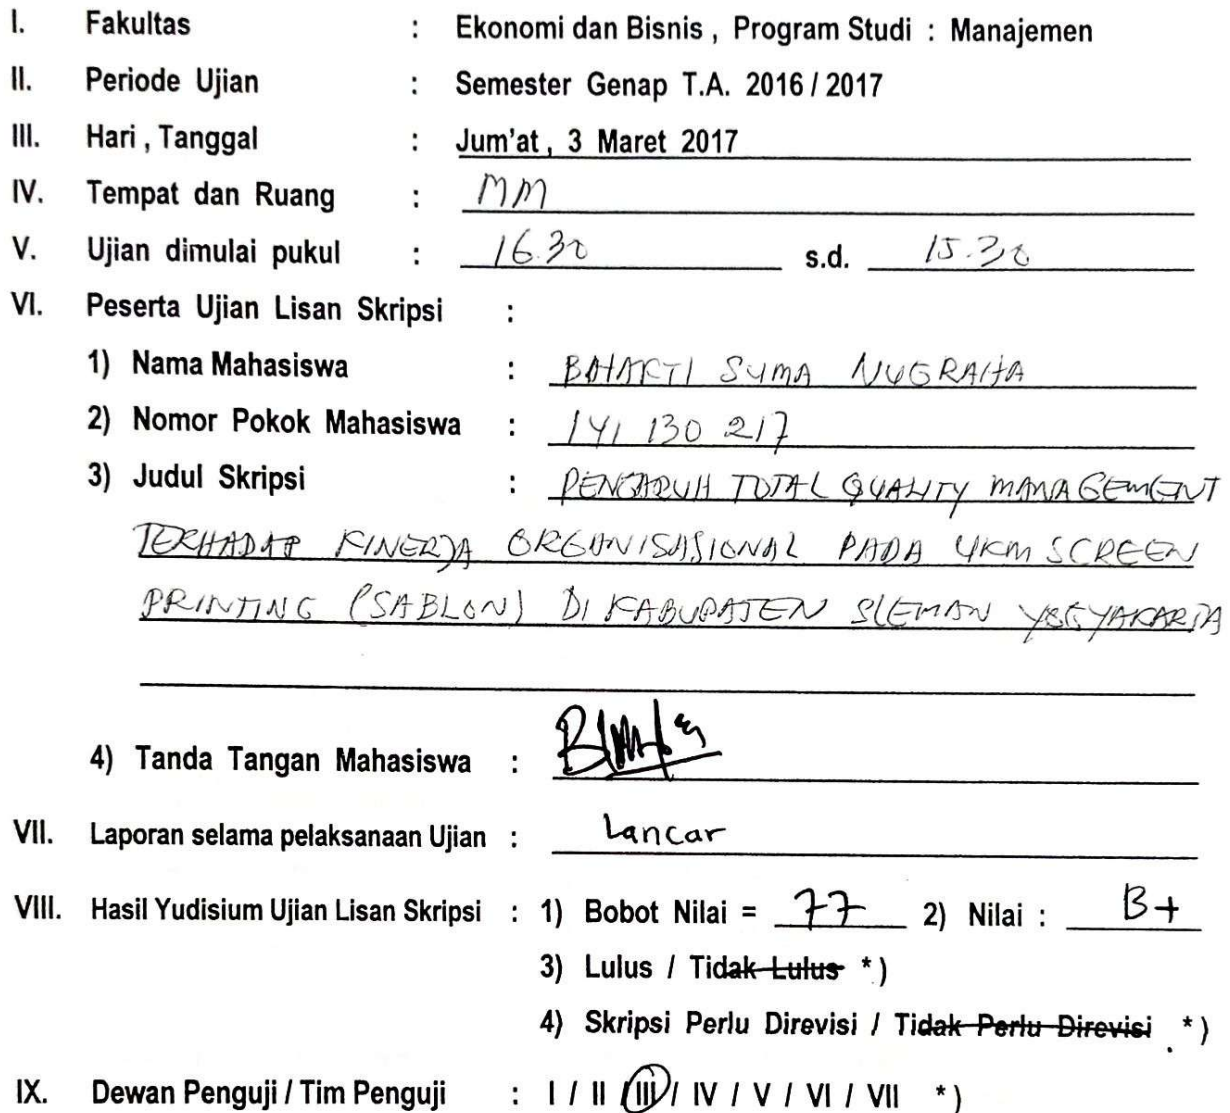 I. Fakultas : Ekonomi dan Bisnis , Program Studi : Manajemen
II. Periode Ujian : Semester Genap T.A. 2016 / 2017
III. Hari , Tanggal : Jum'at , 3 Maret 2017
IV. Tempat dan Ruang : MM
V. Ujian dimulai pukul : 16.30 s.d. 15.30
VI. Peserta Ujian Lisan Skripsi :
1) Nama Mahasiswa : BAHAKTI SUMA NUGRAHA
2) Nomor Pokok Mahasiswa : 141 130 217
3) Judul Skripsi : PENGARUH TOTAL QUALITY MANAGEMENT
TERHADAP KINERJA ORGANISASIONAL PADA UKM SCREEN
PRINTING (SABLON) DI KABUPATEN SLEMAN YOGYAKARTA
4) Tanda Tangan Mahasiswa :
VII. Laporan selama pelaksanaan Ujian : Lancar
VIII. Hasil Yudisium Ujian Lisan Skripsi : 1) Bobot Nilai = 77 2) Nilai : B+
3) Lulus / Tidak Lulus *)
4) Skripsi Perlu Direvisi / Tidak Perlu Direvisi . *)
IX. Dewan Penguji / Tim Penguji : I / II / III / IV / V / VI / VII *)